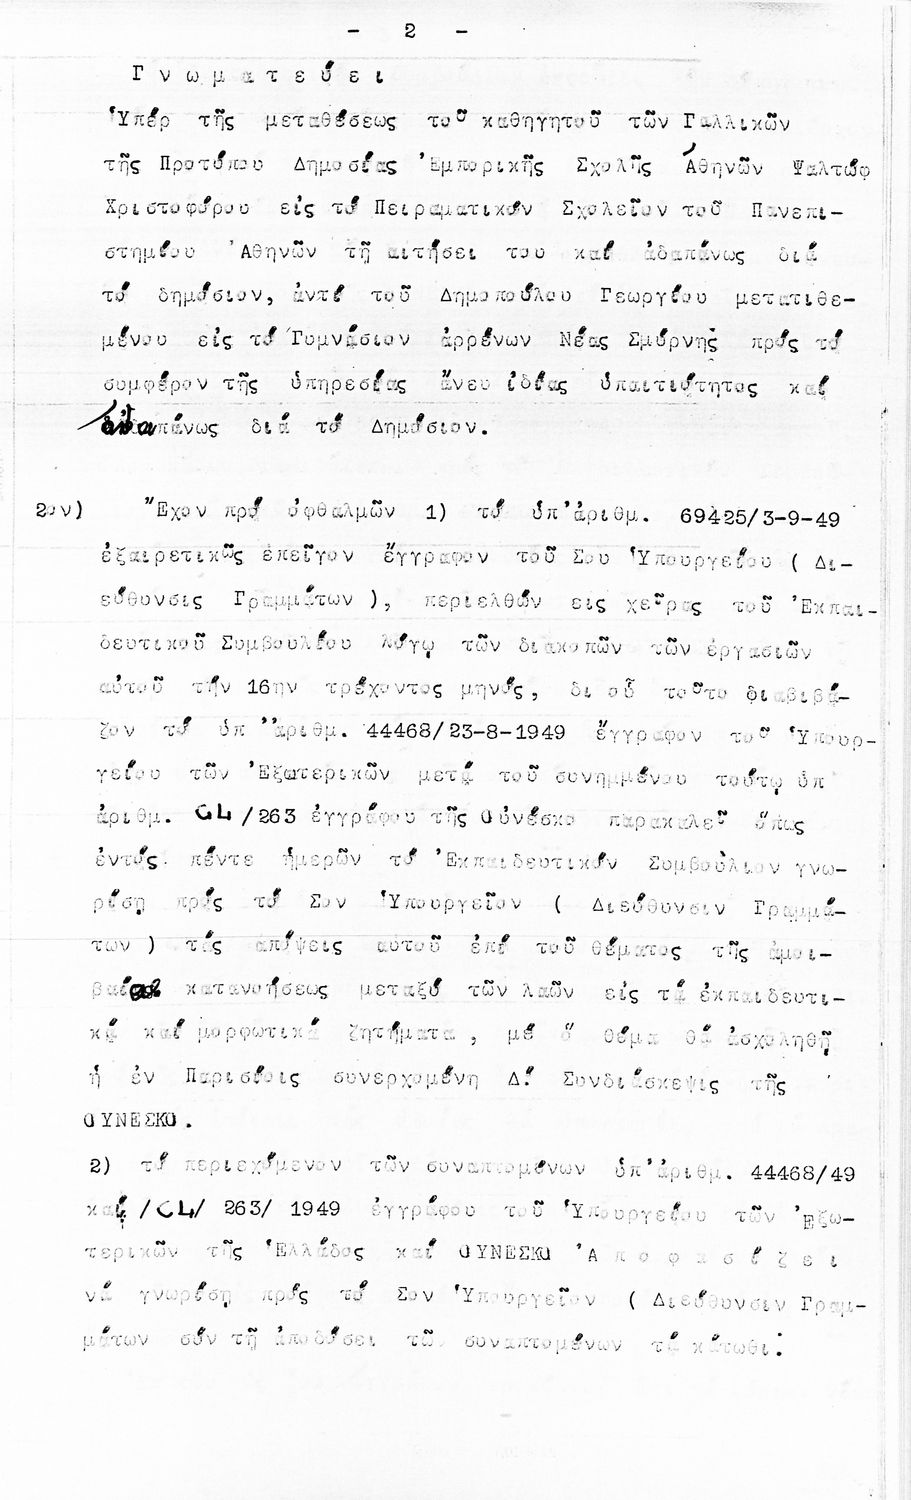 - 2 -
Γ ν ω μ α τ ε ύ ε ι
Ὑπέρ τῆς μεταθέσεως τοῦ καθηγητοῦ τῶν Γαλλικῶν
τῆς Προτύπου Δημοσίας Ἐμπορικῆς Σχολῆς Ἀθηνῶν Ψαλτώφ
Χριστοφόρου εἰς τό Πειραματικόν Σχολεῖον τοῦ Πανεπι-
στημίου Ἀθηνῶν τῇ αιτήσει του καί ἀδαπάνως διά
τό δημόσιον, ἀντί τοῦ Δημοπούλου Γεωργίου μετατιθε-
μένου εἰς τό Γυμνάσιον ἀρρένων Νέας Σμύρνης πρός τό
συμφέρον τῆς ὑπηρεσίας ἄνευ ἰδίας ὑπαιτιότητος καί
ἀδαπάνως διά τό Δημόσιον.
2ον) Ἔχον πρό ὀφθαλμῶν 1) τό ὑπ' ἀριθμ. 69425/3-9-49
ἐξαιρετικῶς ἐπεῖγον ἔγγραφον τοῦ Σου Ὑπουργείου ( Δι-
εύθυνσις Γραμμάτων ), περιελθών εις χεῖρας τοῦ Ἐκπαι-
δευτικοῦ Συμβουλίου λόγῳ τῶν διακοπῶν τῶν ἐργασιῶν
αὐτοῦ τήν 16ην τρέχοντος μηνός, δι οὗ τοῦτο διαβιβά-
ζον τό ὑπ' ἀριθμ. 44468/23-8-1949 ἔγγραφον τοῦ Ὑπουρ-
γείου τῶν Ἐξωτερικῶν μετά τοῦ συνημμένου τούτῳ ὑπ'
ἀριθμ. CL /263 ἐγγράφου τῆς Οὐνέσκο παρακαλεῖ ὅπως
ἐντός πέντε ἡμερῶν τό Ἐκπαιδευτικόν Συμβούλιον γνω-
ρίσῃ πρός τό Σον Ὑπουργεῖον ( Διεύθυνσιν Γραμμά-
των ) τάς ἀπόψεις αυτοῦ ἐπί τοῦ θέματος τῆς ἀμοι-
βαίας κατανοήσεως μεταξύ τῶν λαῶν εἰς τά ἐκπαιδευτι-
κά καί μορφωτικά ζητήματα , μέ ὅ θέμα θά ἀσχοληθῇ
ἡ ἐν Παρισίοις συνερχομένη Δ! Συνδιάσκεψις τῆς
ΟΥΝΕΣΚΟ.
2) τό περιεχόμενον τῶν συναπτομένων ὑπ' ἀριθμ. 44468/49
καί /CL/ 263/ 1949 ἐγγράφου τοῦ Ὑπουργείου τῶν Ἐξω-
τερικῶν τῆς Ἑλλάδος καί ΟΥΝΕΣΚΟ Ἀ π ο φ α σ ί ζ ε ι
νά γνωρίσῃ πρός τό Σον Ὑπουργεῖον ( Διεύθυνσιν Γραμ-
μάτων σύν τῇ ἀποδόσει τῶν συναπτομένων τά κάτωθι: